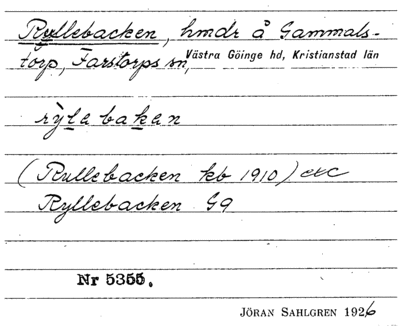 Ryllebacken, hmdr å Gammals-
torp, Farstorps sn, Västra Göinge hd, Kristianstad län
rỳlabakan
(Rullebacken kb 1910) etc
Ryllebacken G9
Nr 5355.
JÖRAN SAHLGREN 1926